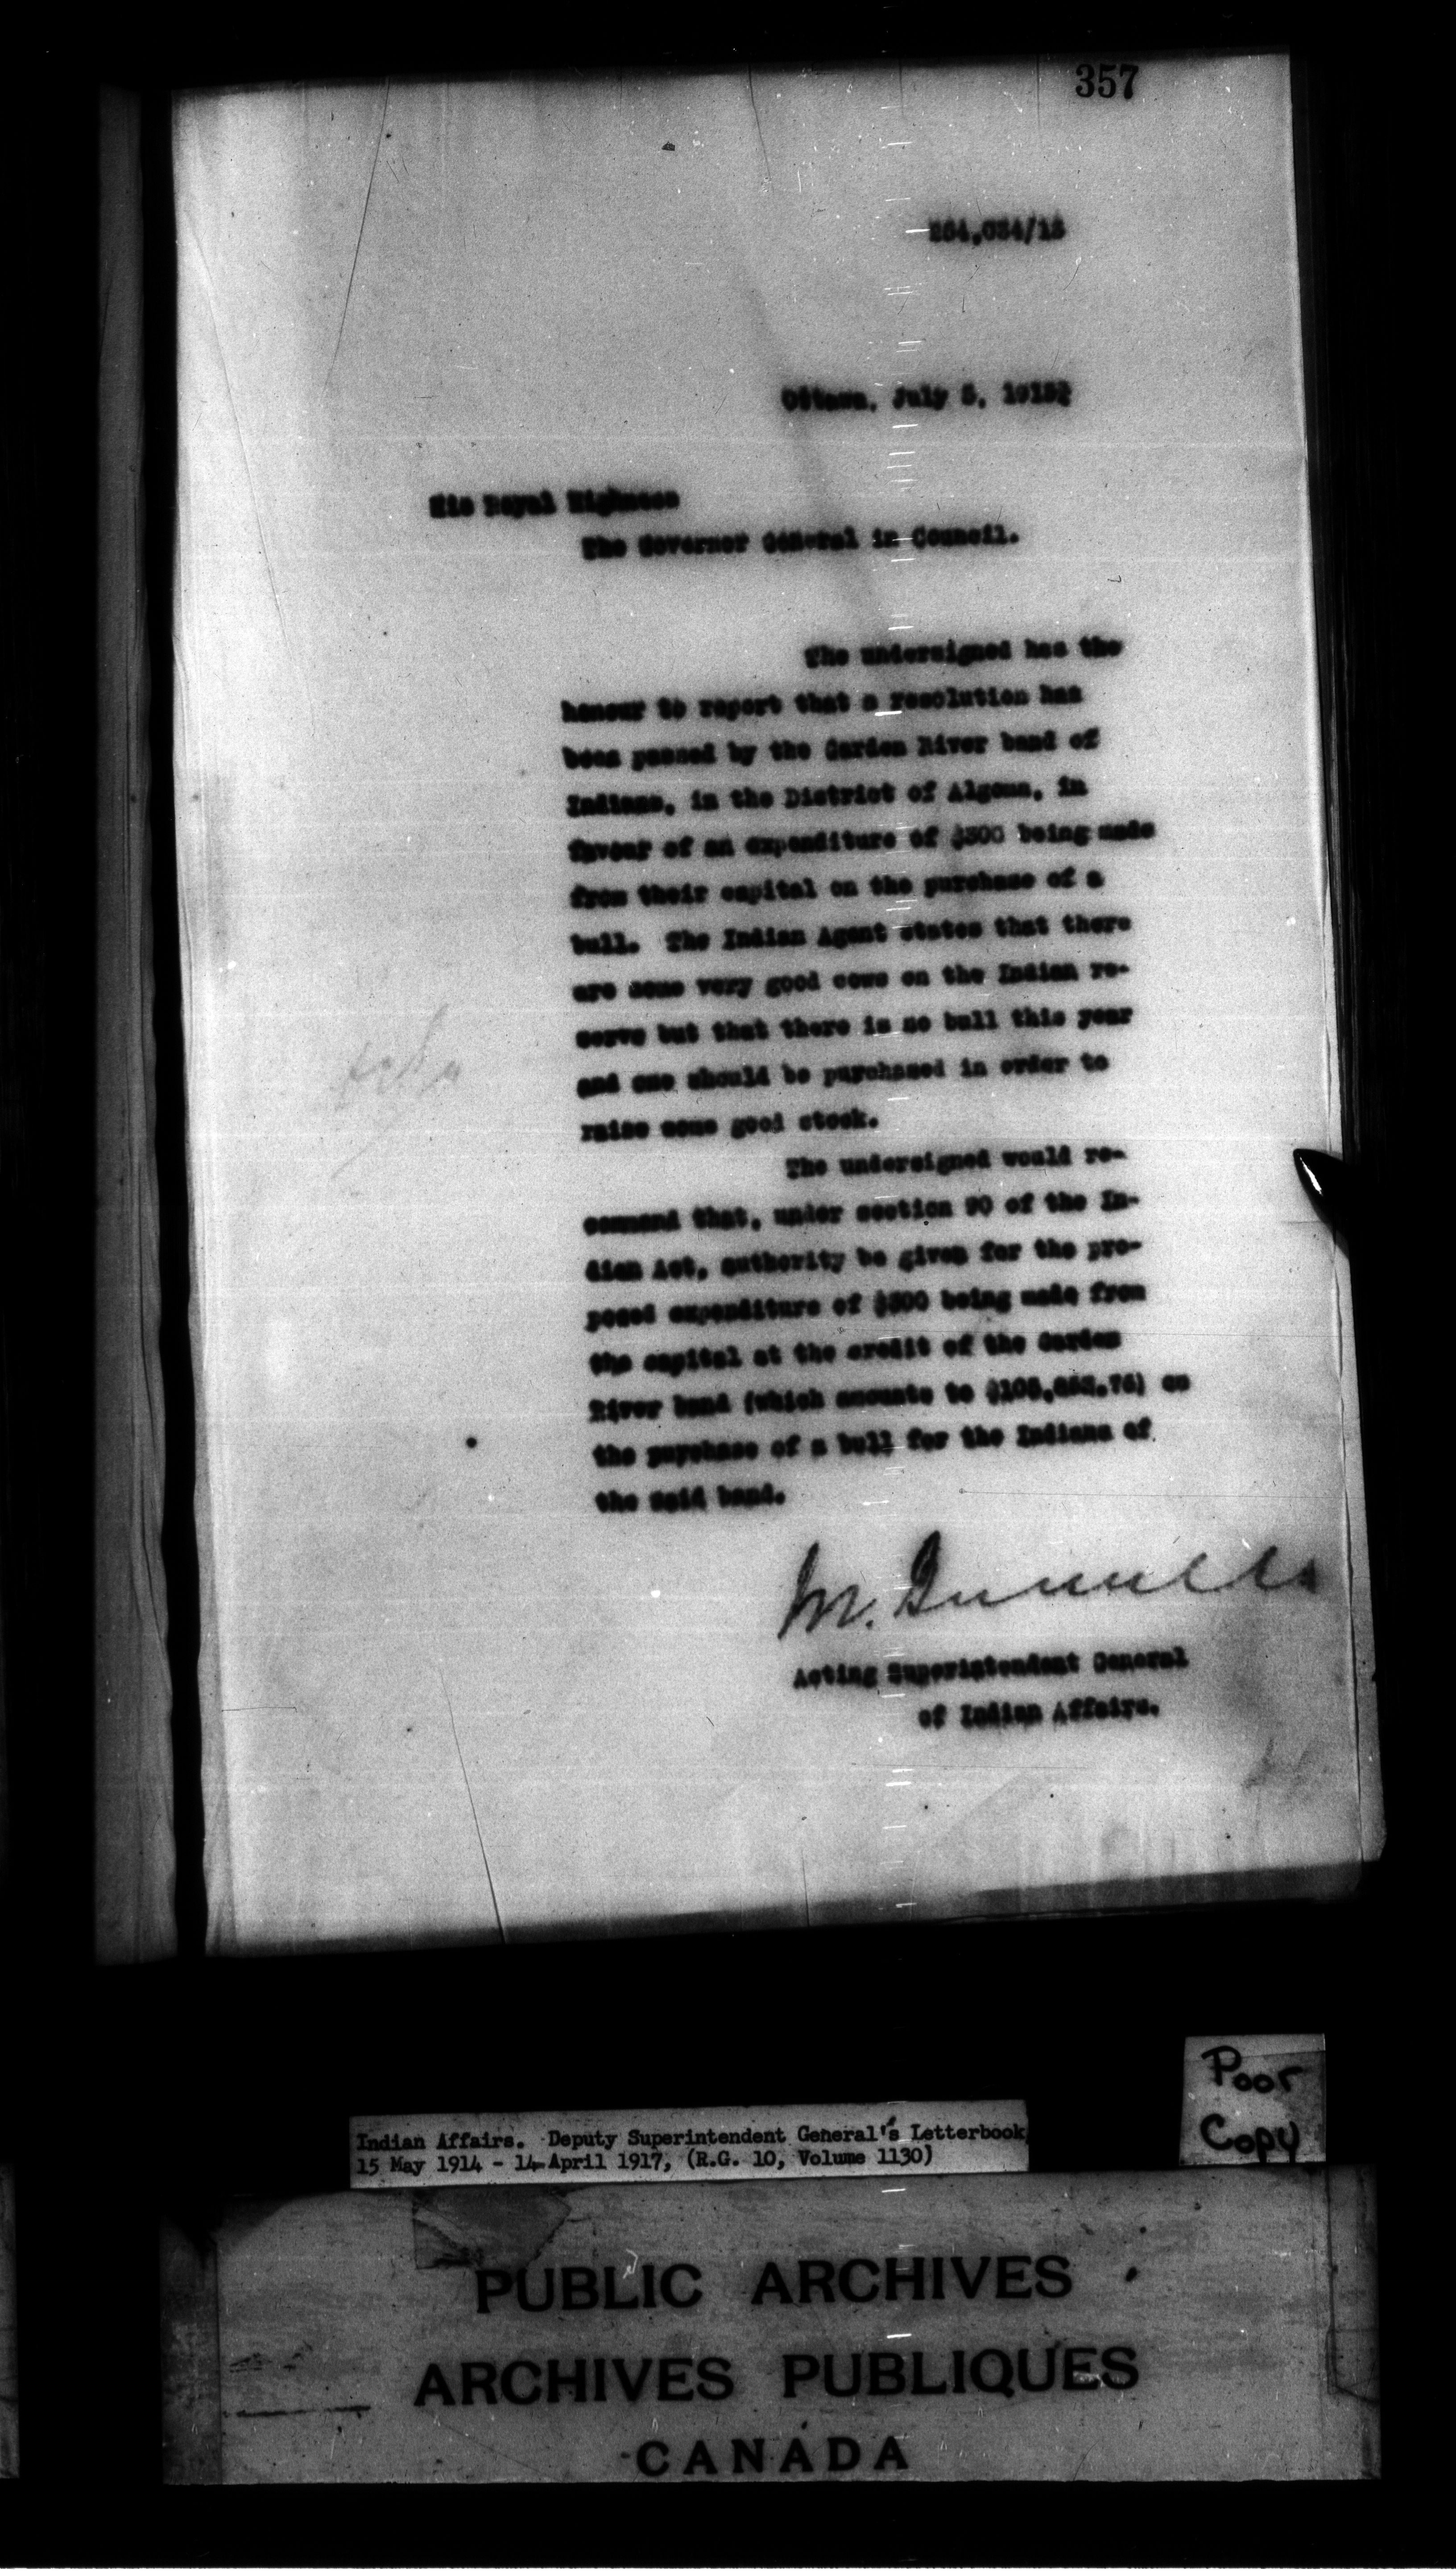 357
Ottawa, July 5, 1915
His Royal Highness
The Governor General in Council.
The undersigned has the
honour to report that a resolution has
been passed by the Garden River band of
Indians, in the District of Algoma, in
favour of an expenditure of $300 being made
from their capital on the purchase of a
bull. The Indian Agent states that there
are some very good cows on the Indian re-
serve but that there is no bull this year
and one should be purchased in order to
raise some good stock.
The undersigned would re-
commend that, under section 90 of the In-
dian Act, authority be given for the pro-
posed expenditure of $300 being made from
the capital at the credit of the Garden
River band (which amounts to on
the purchase of a bull for the Indians of
the said band.
M.
Acting Superintendent General
of Indian Affairs.
Poor
Copy
Indian Affairs. Deputy Superintendent General's Letterbook,
15 May 1914 - 14 April 1917, (R.G. 10, Volume 1130)
PUBLIC ARCHIVES
ARCHIVES PUBLIQUES
CANADA